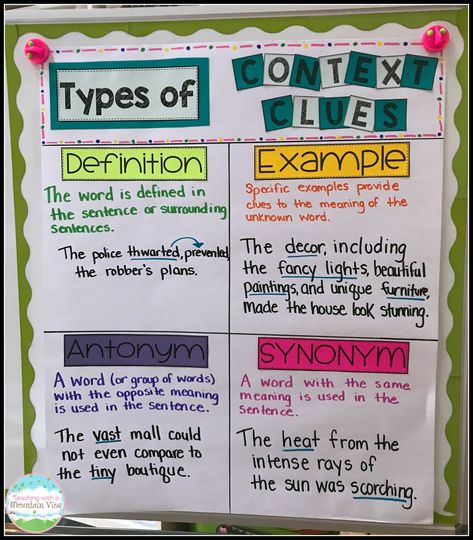 Types of
CONTEXT
CLUES
Definition
The word is defined in
the sentence or surrounding
sentences.
The police thwarted, prevented,
the robber's plans.
Example
Specific examples provide
clues to the meaning of the
unknown word.
The decor, including
the fancy lights, beautiful
paintings, and unique furniture,
made the house look stunning.
Antonym
A word (or group of words)
with the opposite meaning
is used in the sentence.
The vast mall could
not even compare to
the tiny boutique.
SYNONYM
A word with the same
meaning is used in the
sentence.
The heat from the
intense rays of
the sun was scorching.
Teaching with a
Mountain View